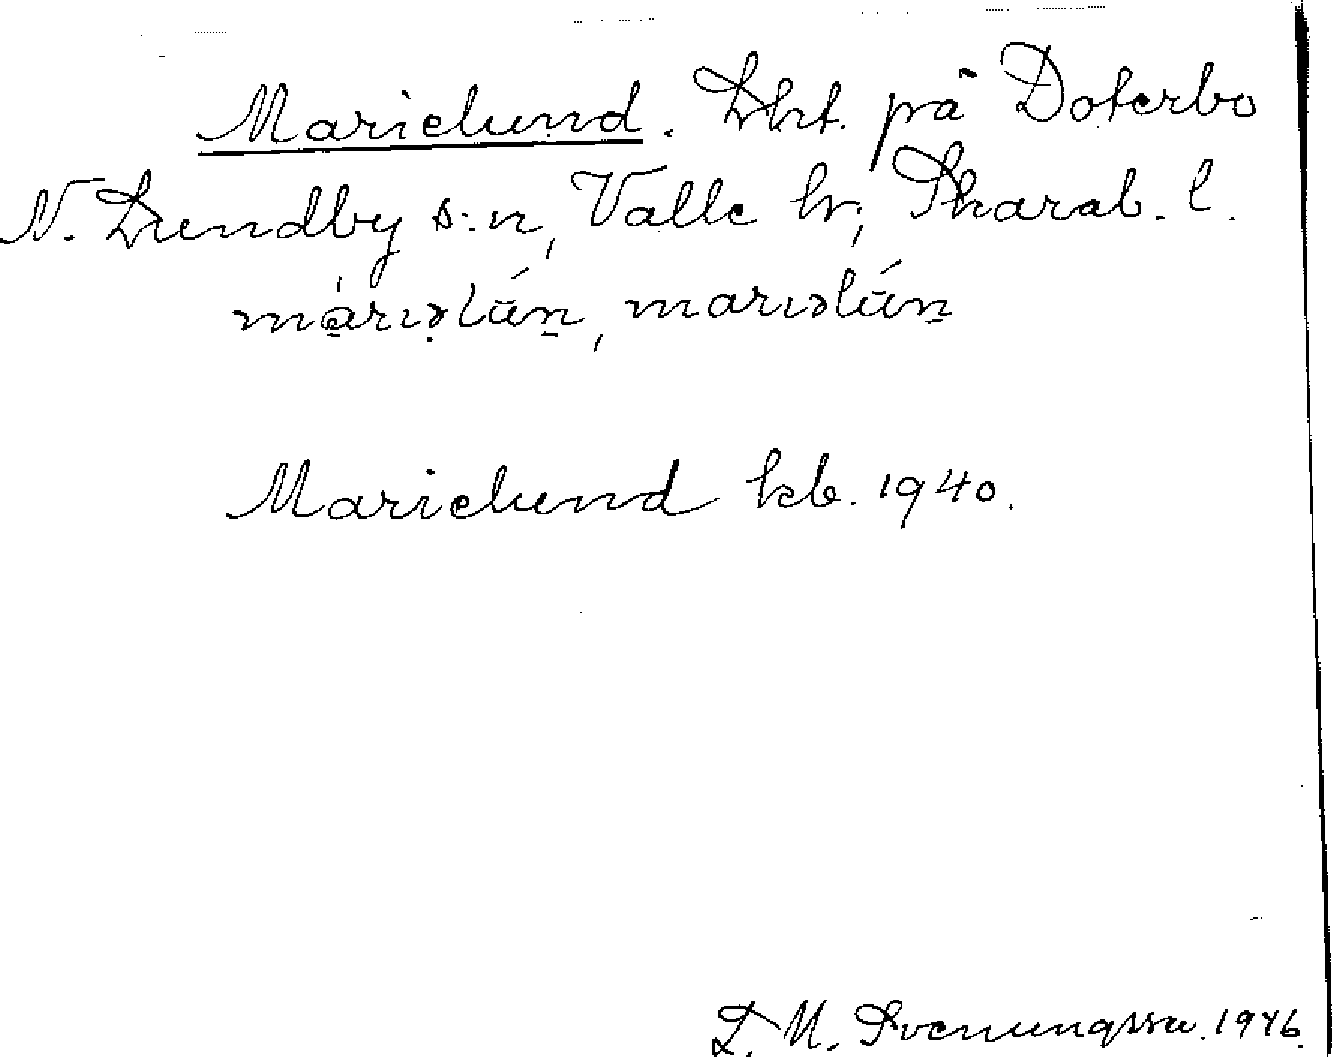 Marielund. Lht. på Doterbo
N. Lundby s:n, Valle hr; Skarab. l.
màrɩəlūń, marɩəlūń
Marielund kb. 1940.
L. M. Svenungsson. 1946.